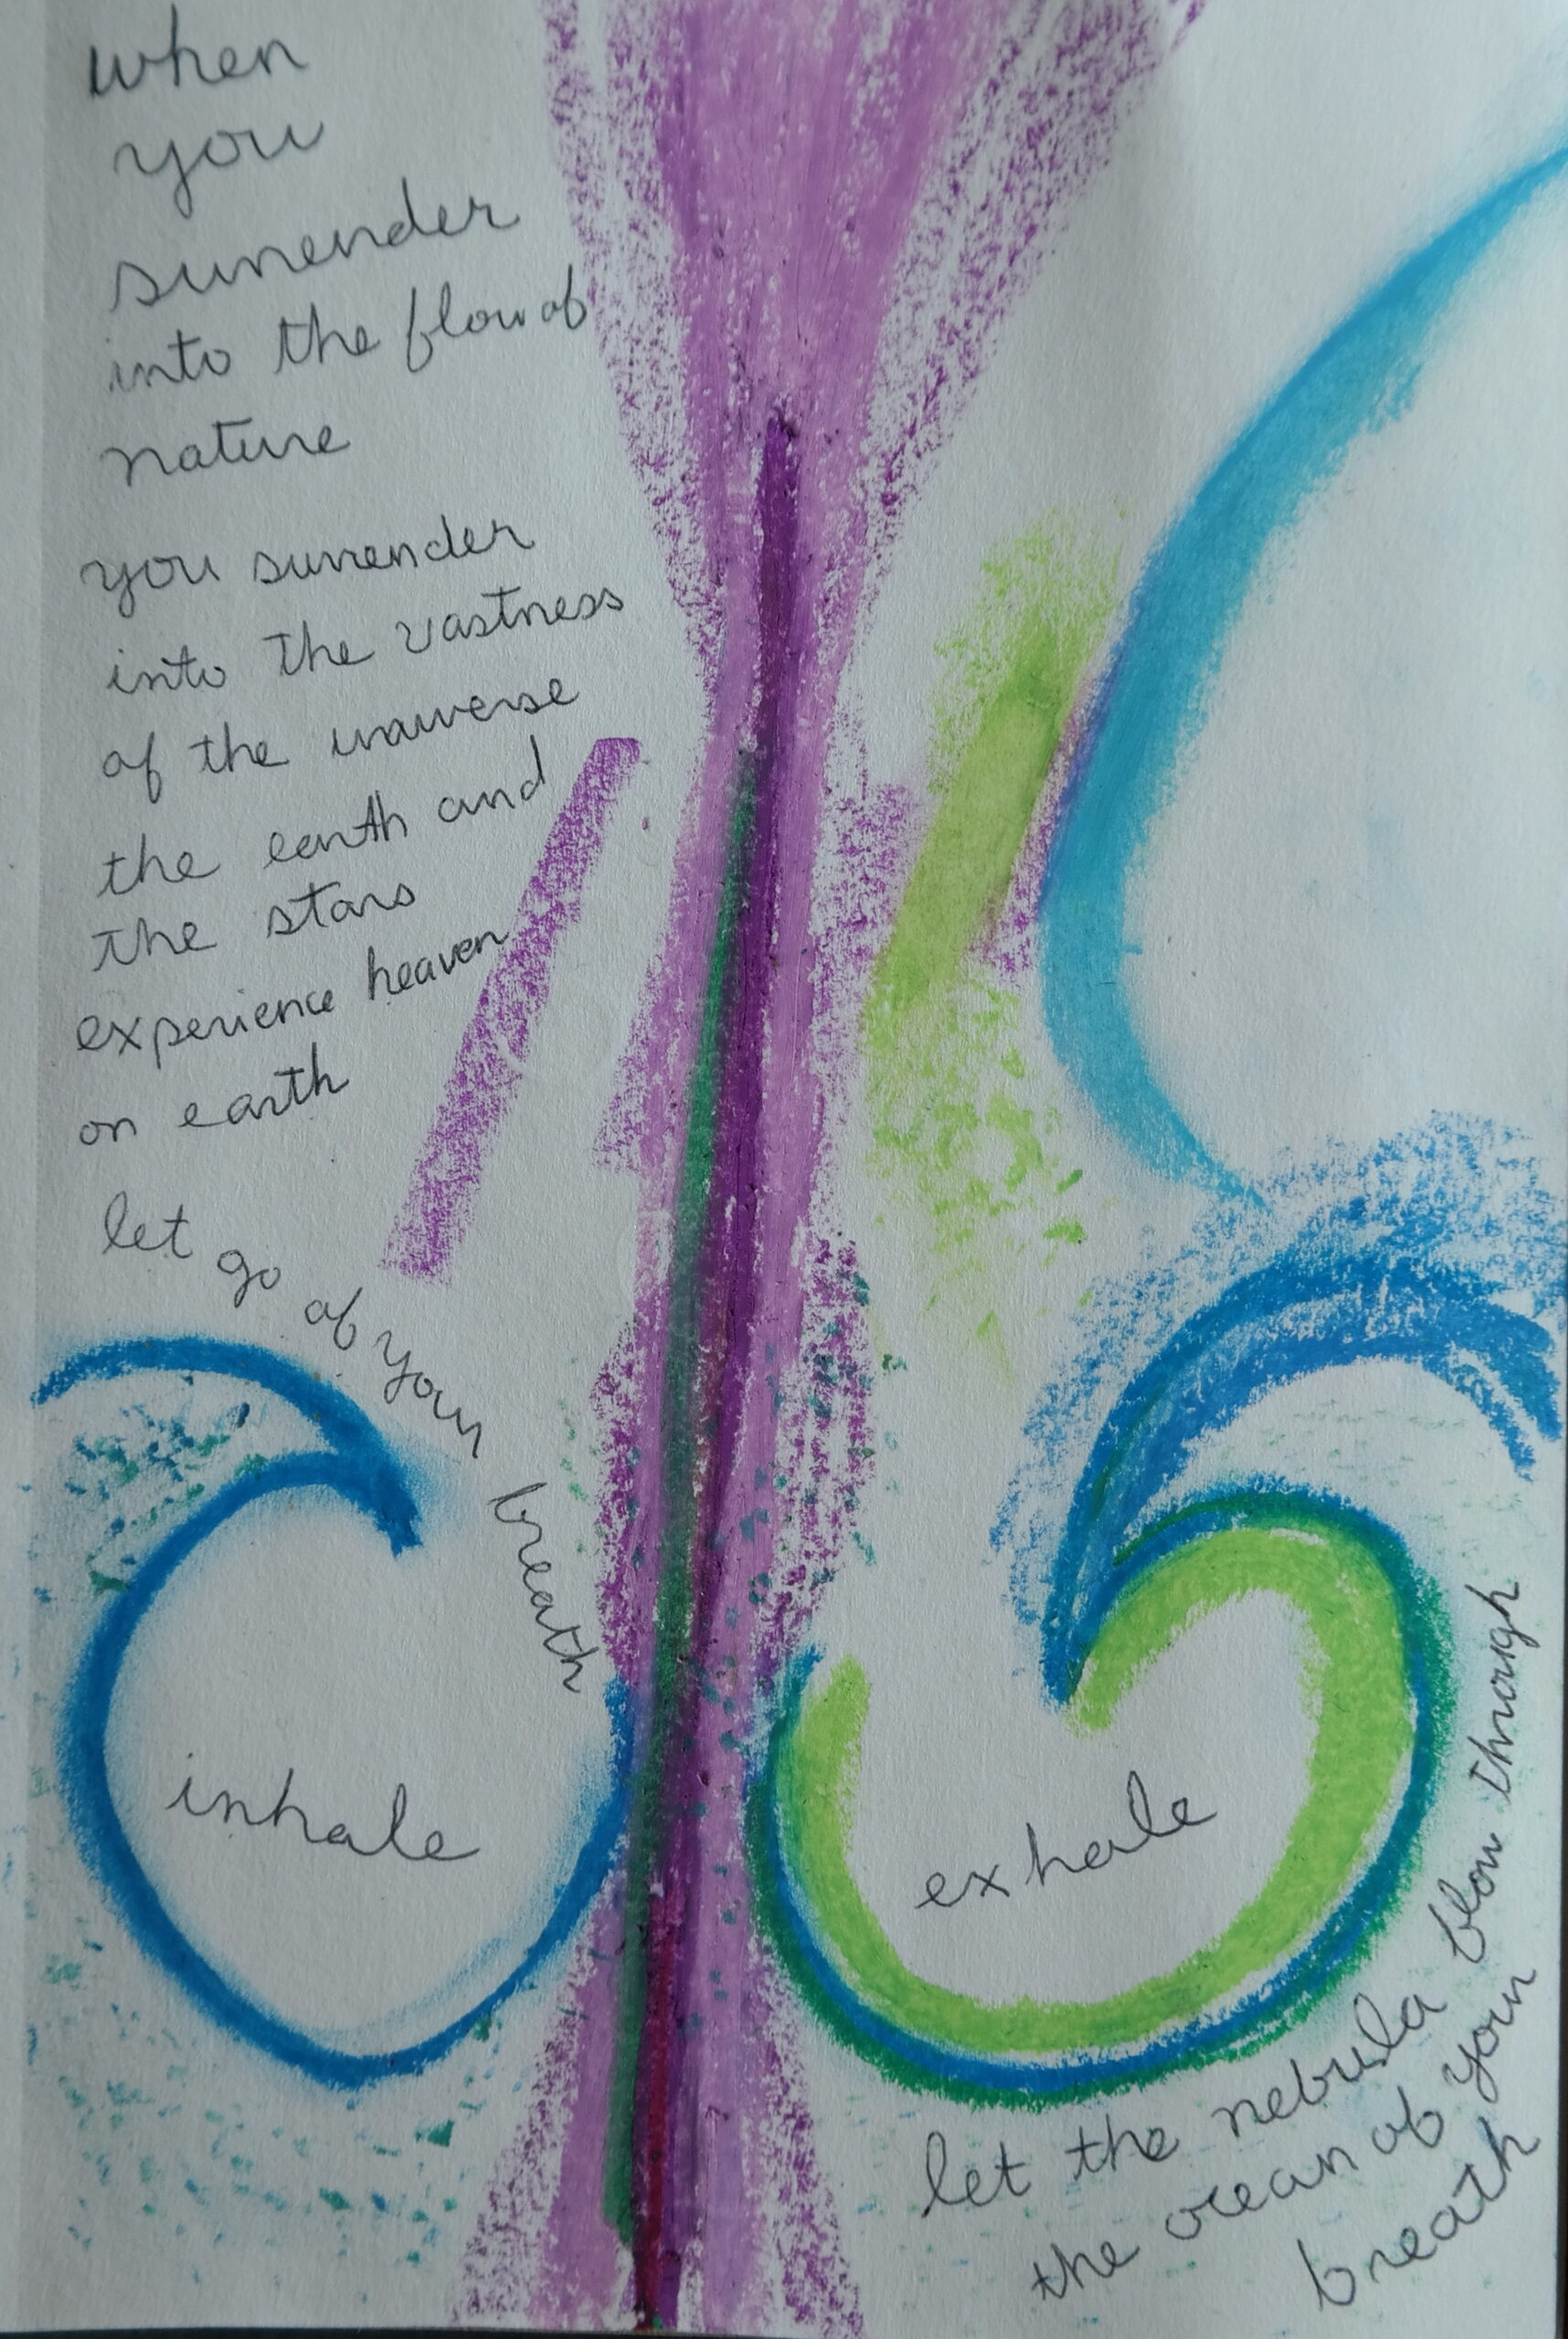 when
you
surrender
into the flow of
nature
you surrender
into the vastness
of the universe
the earth and
the stars
experience heaven
on earth
let go of your breath
inhale
exhale
let the nebula flow through
the ocean of your
breath